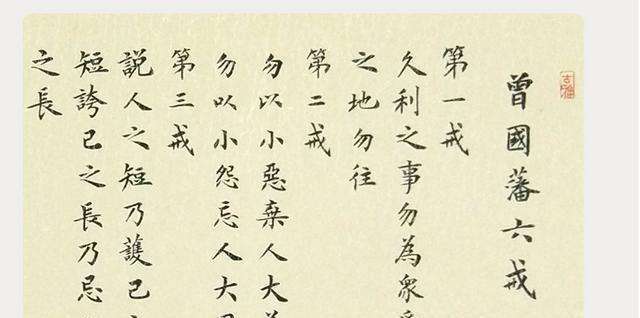 曾國藩六戒
第一戒
久利之事勿為衆
之地勿往
第二戒
勿以小惡棄人大
勿以小怨忘人大
第三戒
説人之短乃護己
短誇己之長乃忌
之長